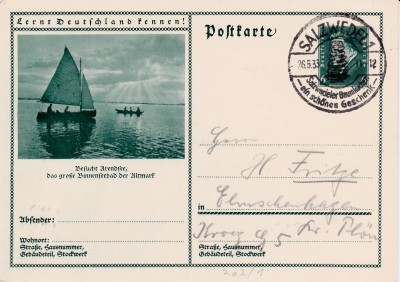 Lernt Deutschland kennen!
Postkarte
SALZWEDEL 1
26.5.33
12
Salzwedeler Baumkuchen
ein schönes Geschenk
Besucht Arendsee,
das große Binnenseebad der Altmark
Herrn
H Fritze
in Elmschenhagen
Kroog 95 Kr. Plön
Absender:
Wohnort:
Straße, Hausnummer,
Gebäudeteil, Stockwerk
Straße, Hausnummer,
Gebäudeteil, Stockwerk